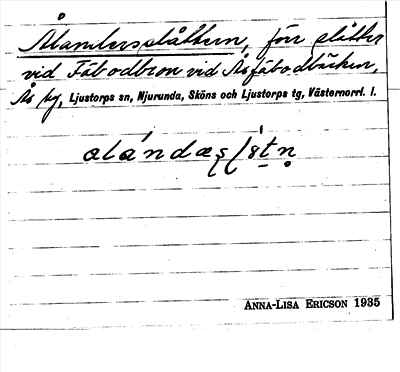 Ålandersslåtten, förr slåtter
vid Fäbodbron vid Åsfäbodbäcken,
Ås by, Ljustorps sn, Njurunda, Sköns och Ljustorps tg, Västernorrl. l.
ANNA-LISA ERICSON 1935